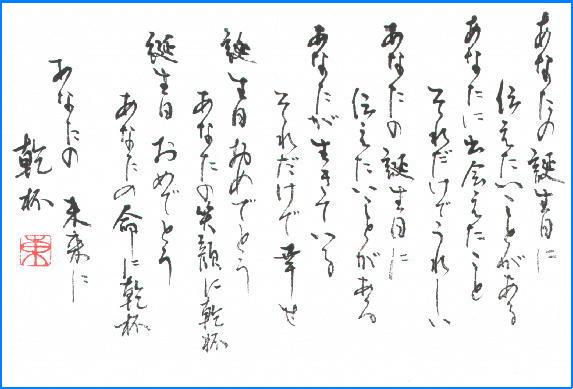 あなたの誕生日に
伝えたいことがある
あなたに出会えたこと
それだけでうれしい
あなたの誕生日に
伝えたいことがある
あなたが生きている
それだけで幸せ
誕生日おめでとう
あなたの笑顔に乾杯
誕生日おめでとう
あなたの命に乾杯
あなたの未来に
乾杯
東